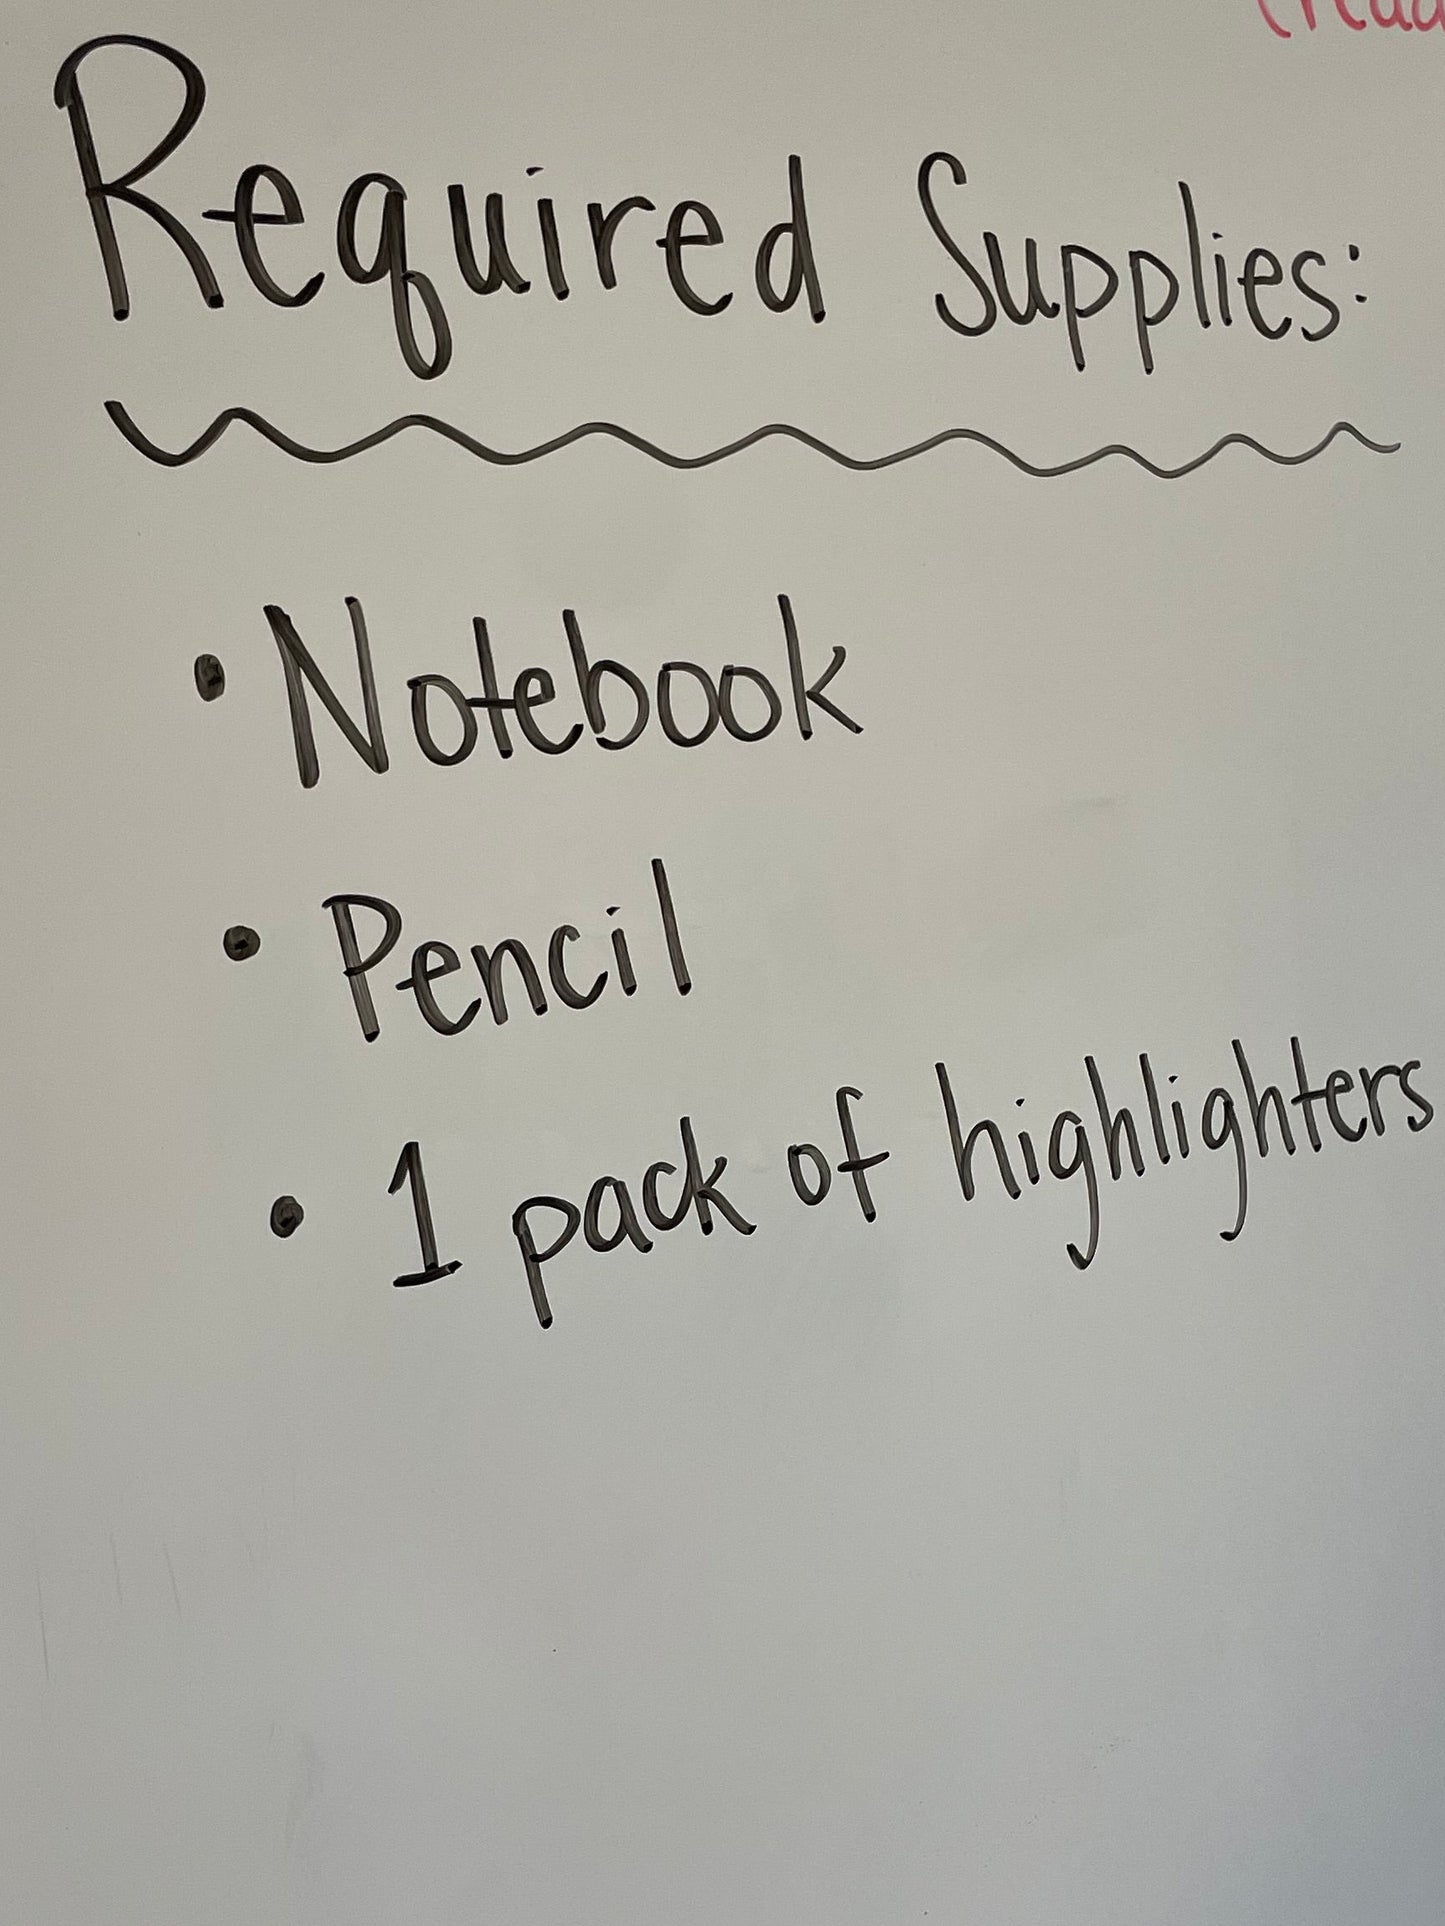 Required Supplies:
• Notebook
• Pencil
• 1 pack of highlighters